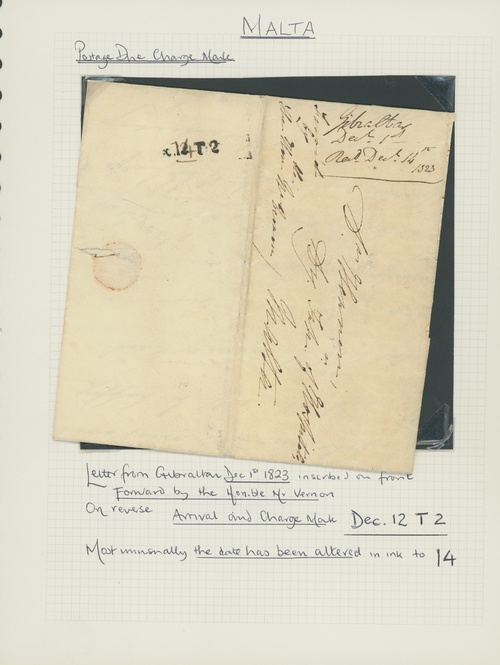 MALTA
Postage Due Charge Mark
Gibraltar
Dec. 1st
Recd. Decr. 14th
1823
14 T 2
Malta.
Letter from Gibraltar Dec 1st 1823 inscribed on front
Forward by the Hon.ble Mr Vernon
On reverse
Arrival and Charge Mark Dec. 12 T 2
Most unusually the date has been altered in ink to 14